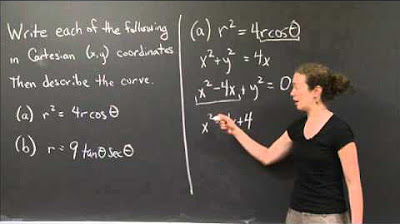 Write each of the following
in Cartesian (x,y) coordinates
Then describe the curve.
(a) r² = 4r cosθ
(b) r = 9 tanθ secθ
(a) r² = 4r cosθ
x² + y² = 4x
x² - 4x + y² = 0
x² +4